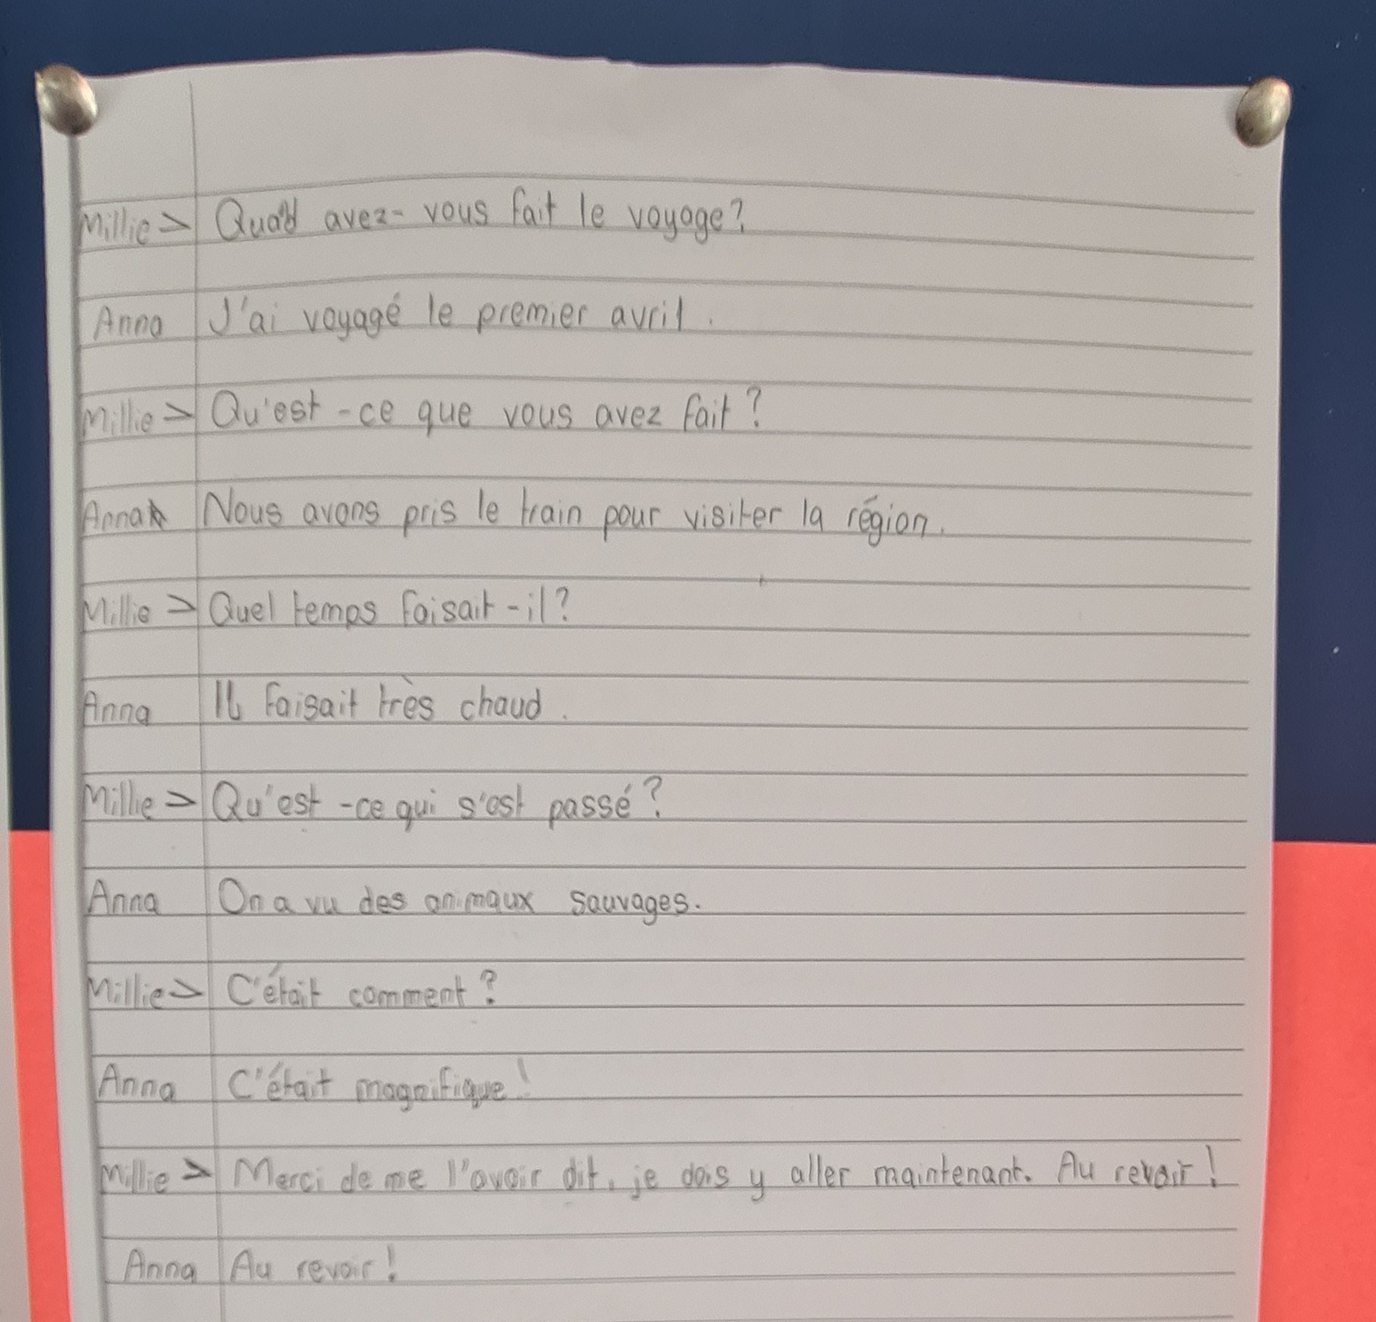 Millie > Quand avez-vous fait le voyage?
Anna J'ai voyagé le premier avril.
Millie > Qu'est-ce que vous avez fait?
Anna Nous avons pris le train pour visiter la région.
Millie > Quel temps faisait-il?
Anna Il faisait très chaud.
Millie > Qu'est-ce qui s'est passé?
Anna On a vu des animaux sauvages.
Millie > C'était comment?
Anna C'était magnifique!
Millie > Merci de me l'avoir dit, je dois y aller maintenant. Au revoir!
Anna Au revoir!